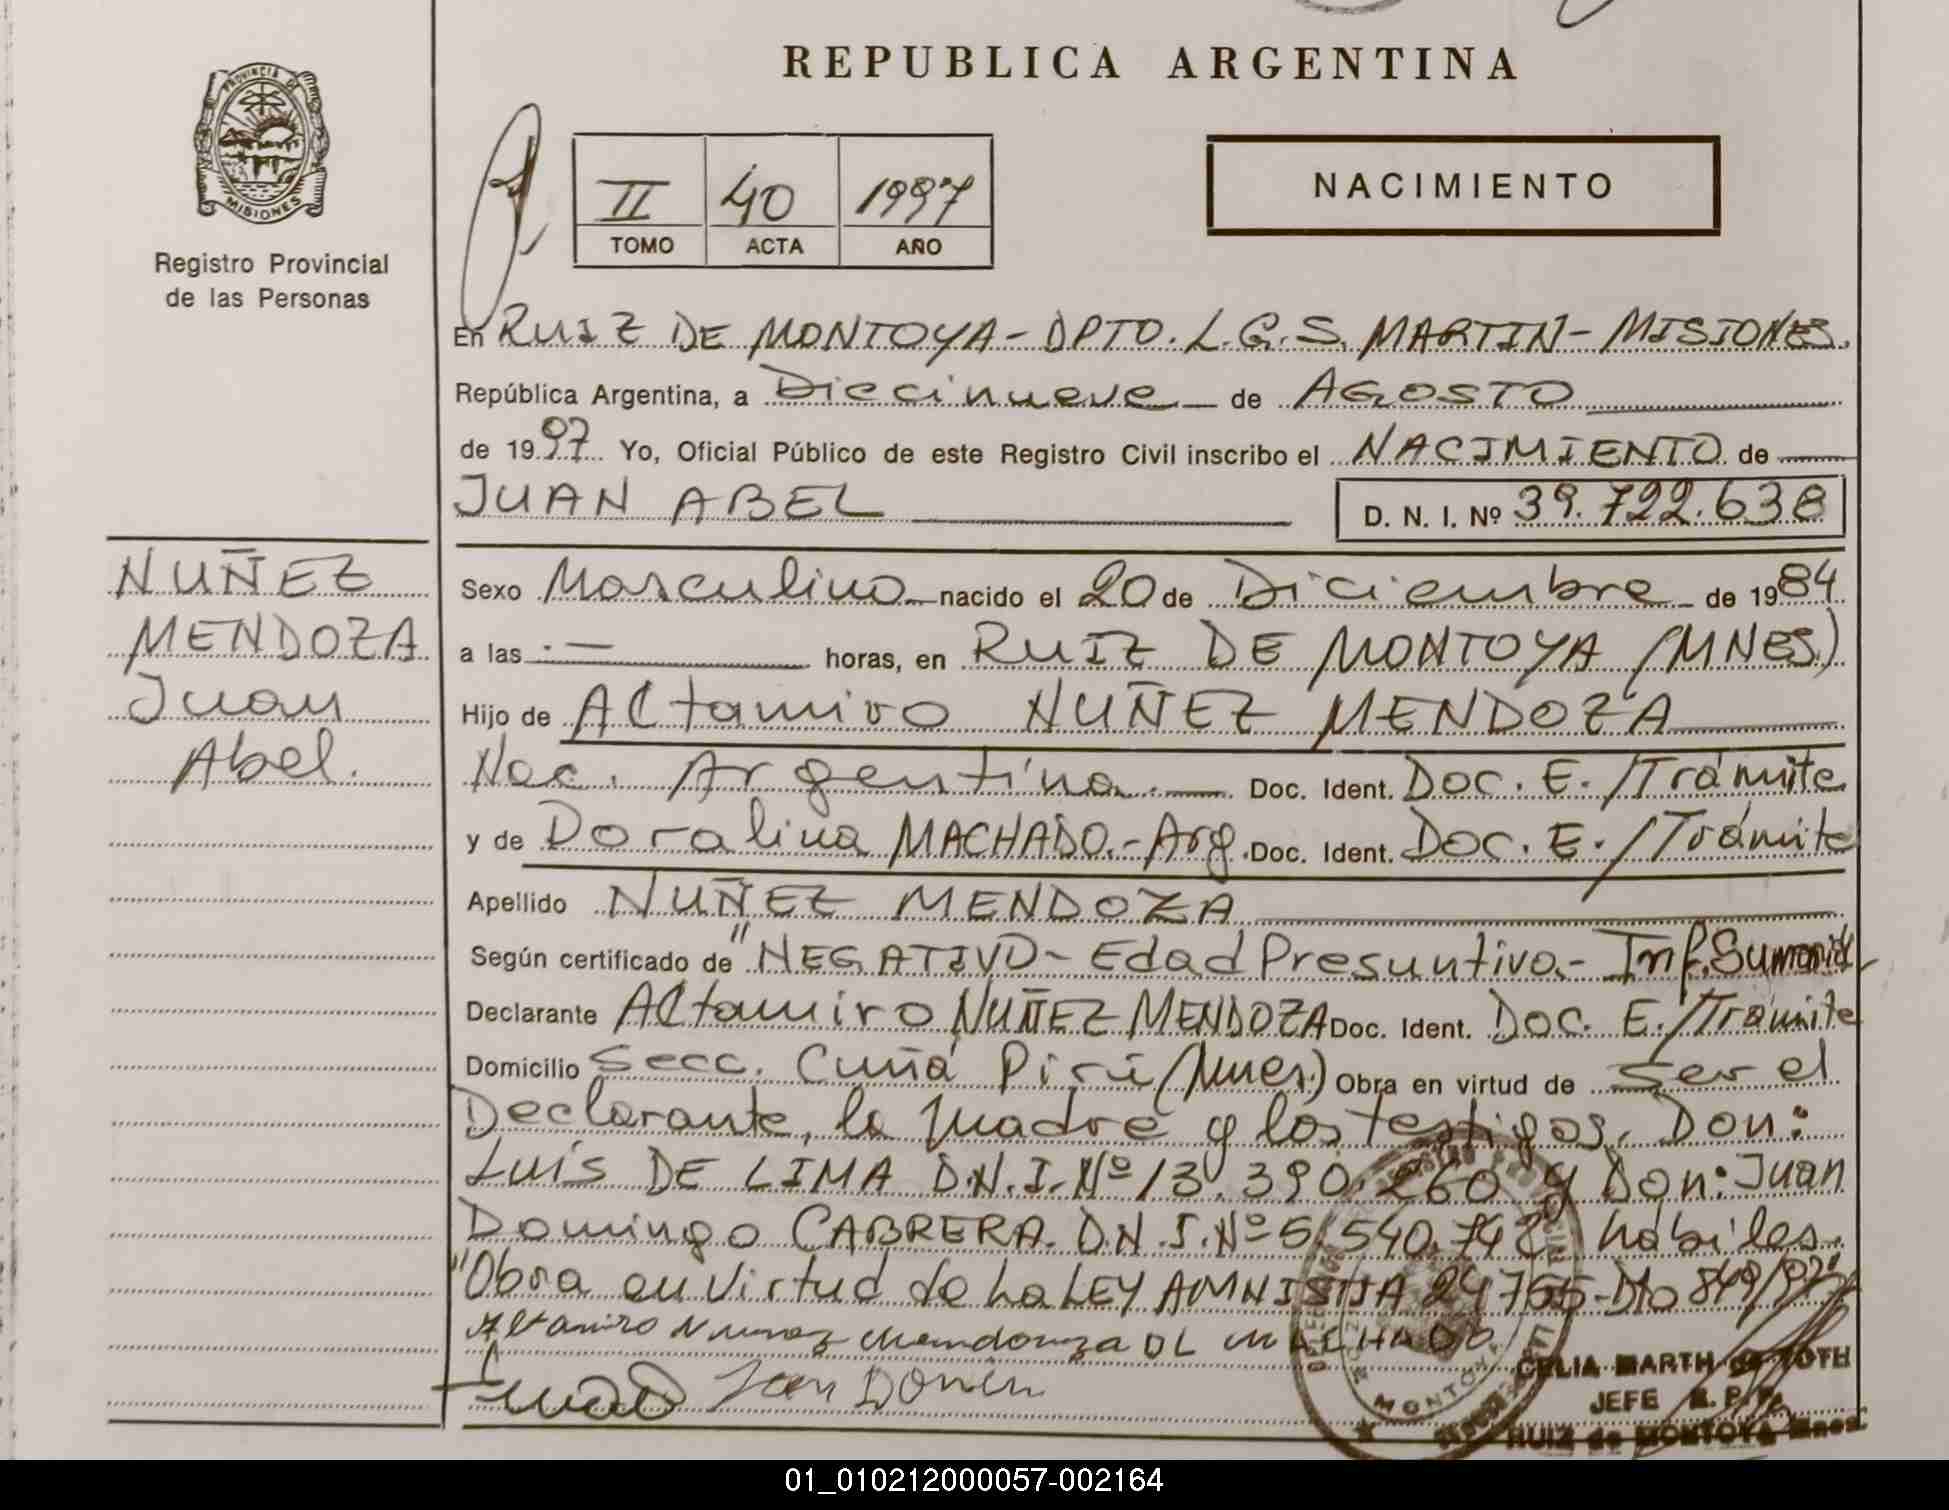 REPUBLICA ARGENTINA
PROVINCIA DE
MISIONES
Registro Provincial
de las Personas
II 40 1997
TOMO ACTA AÑO
NACIMIENTO
En RUIZ DE MONTOYA - DPTO. L.G.S. MARTIN - MISIONES.
República Argentina, a Diecinueve de AGOSTO
de 1997 Yo, Oficial Público de este Registro Civil inscribo el NACIMIENTO de
JUAN ABEL D. N. I. Nº 39.722.638
NUÑEZ
MENDOZA
Juan
Abel.
Sexo Masculino nacido el 20 de Diciembre de 1984
a las . — horas, en RUIZ DE MONTOYA (MNES)
Hijo de Altamiro NUÑEZ MENDOZA
Nac. Argentina. — Doc. Ident. Doc. E./Trámite
y de Doralina MACHADO.- Arg. Doc. Ident. Doc. E./Trámite
Apellido NUÑEZ MENDOZA
Según certificado de "NEGATIVO - Edad Presuntiva.- Inf. Sumaria
Declarante Altamiro NUÑEZ MENDOZA Doc. Ident. Doc. E./Trámite
Domicilio Secc. Cuñá Pirú (Mnes.) Obra en virtud de Ser el
Declarante, la madre y los testigos. Don:
Luis DE LIMA D.N.I. Nº 13.390.260 y Don: Juan
Domingo CABRERA. D.N.I. Nº 5.540.742 habiles.
"Obra en Virtud de la LEY AMNISTIA 24755 - Dto 849/97"
Altamiro Nunez Mendonza DL MACHADO
MONTOYA
CELIA MARTH de TOTH
JEFE R. P. P.
RUIZ de MONTOYA Mnes.
01_010212000057-002164